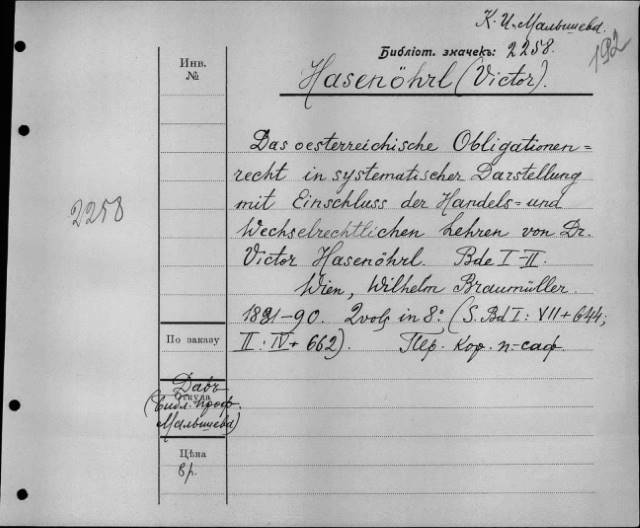 К. И. Малышева.
192
Библіот. значекъ: 2258.
Инв.
№
Hasenöhrl (Victor).
Das oesterreichische Obligationen=
recht in systematischer Darstellung
2258
mit Einschluss der Handels= und
Wechselrechtlichen Lehren von Dr.
Victor Hasenöhrl. Bde I-II.
Wien, Wilhelm Braumüller.
1881-90. 2 vols in 8º. (S. Bd I: VII + 644;
По заказу
II: IV + 662). Пер. кор. п.-саф.
Даръ
Откуда
(библ. проф.
Малышева)
Цѣна
6 р.